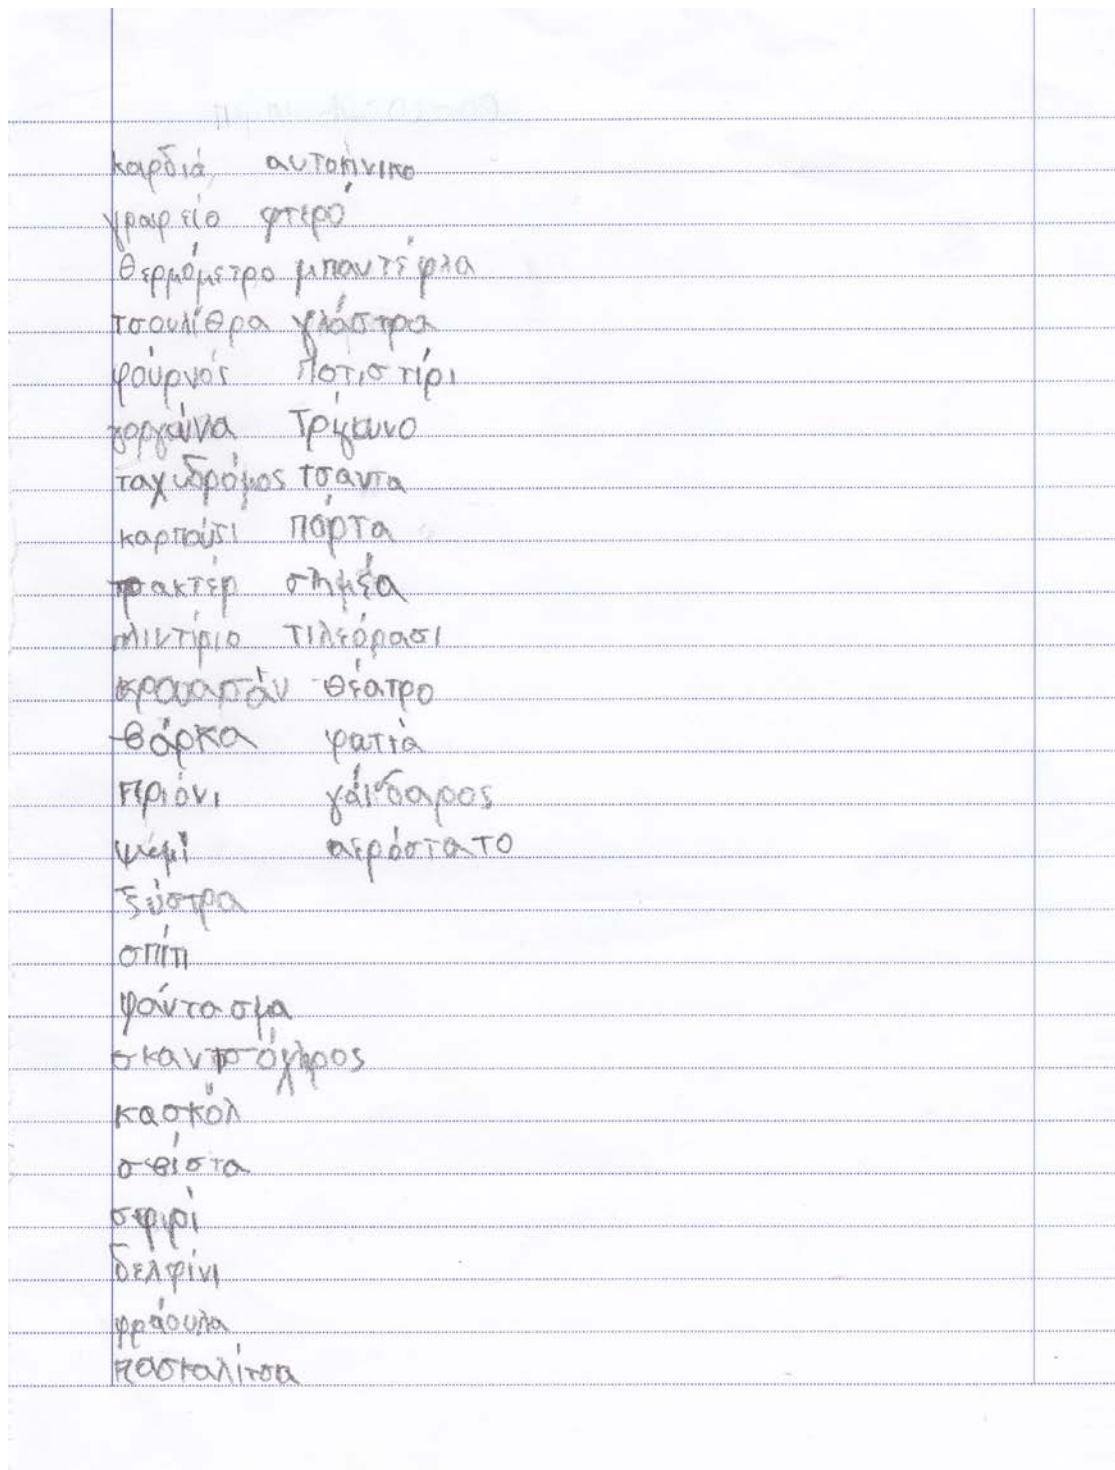 καρδιά αυτοκινικο
γραφείο φτερό
θερμόμετρο μπαντέφλα
τσουλίθρα γλάστρα
φούρνός ποτιστίρι
γοργώνα Τρίγωνο
ταχυδρόμος τσαντα
καρπούσι πόρτα
τρακτέρ
πλιντίριο τιλεόρασι
κρουασάν θέατρο
βάρκα φατιά
πριόνι γάιδαρος
ψωμί αερόστατο
ξύστρα
σπίτι
φάντασμα
κασκόλ
σβίστα
σφιρί
δελφίνι
φράουλα
πασκαλίτσα